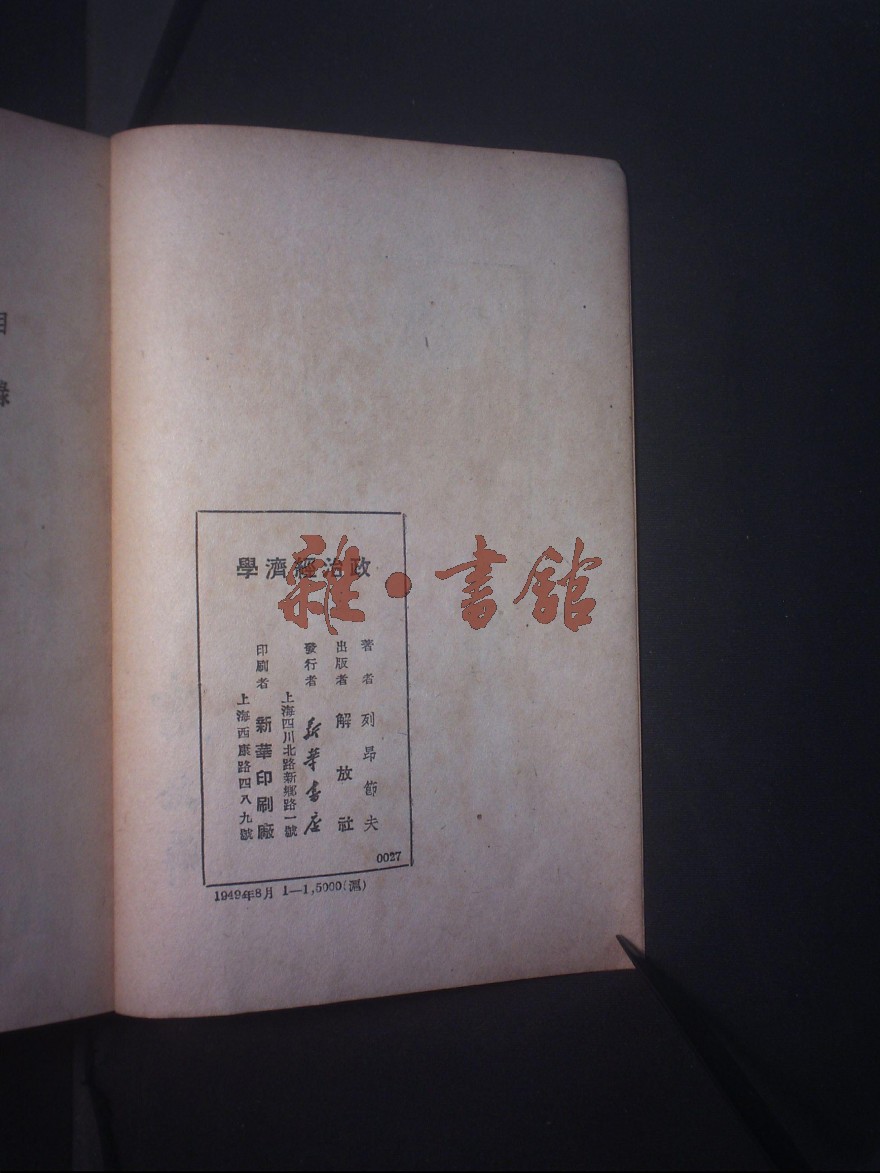 目錄
政治經濟學
著者 列昂節夫
出版者 解放社
發行者 新華書店
上海四川北路新鄉路一號
印刷者 新華印刷廠
上海西康路四八九號
0027
1949年8月 1—1,5000(滬)
雜·書館